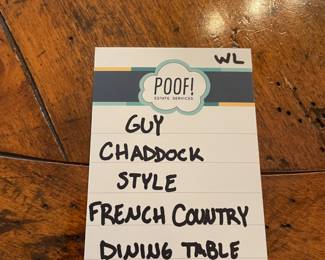 WL
POOF!
ESTATE SERVICES
GUY
CHADDOCK
STYLE
FRENCH COUNTRY
DINING TABLE